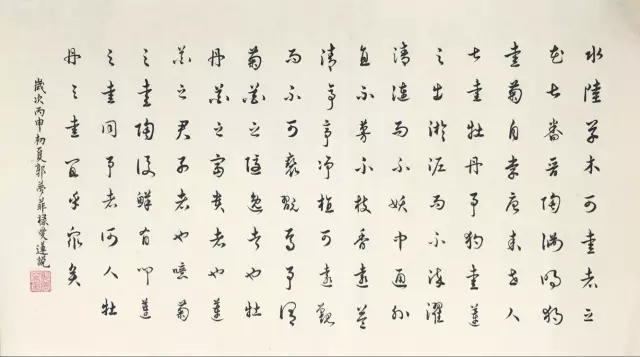 水陸草木可愛者之
花甚蕃晉陶淵明獨
愛菊自李唐來世人
甚愛牡丹予獨愛蓮
之出淤泥而不染濯
清漣而不妖中通外
直不蔓不枝香遠益
清亭亭净植可遠觀
而不可褻翫焉予謂
菊花之隱逸者也牡
丹花之富貴者也蓮
花之君子者也噫菊
之愛陶後鮮有聞蓮
之愛同予者何人牡
丹之愛宜乎眾矣
歲次丙申初夏郭夢菲錄愛蓮說